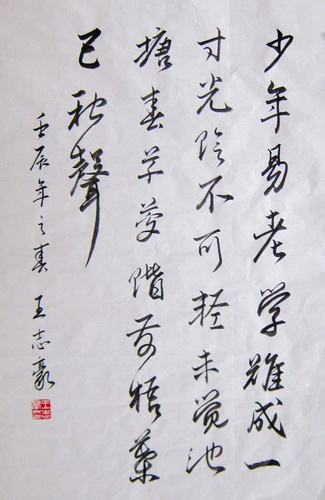 少年易老学难成一
寸光阴不可轻未觉池
塘春草梦阶前梧叶
已秋声
壬辰年之春王志豪